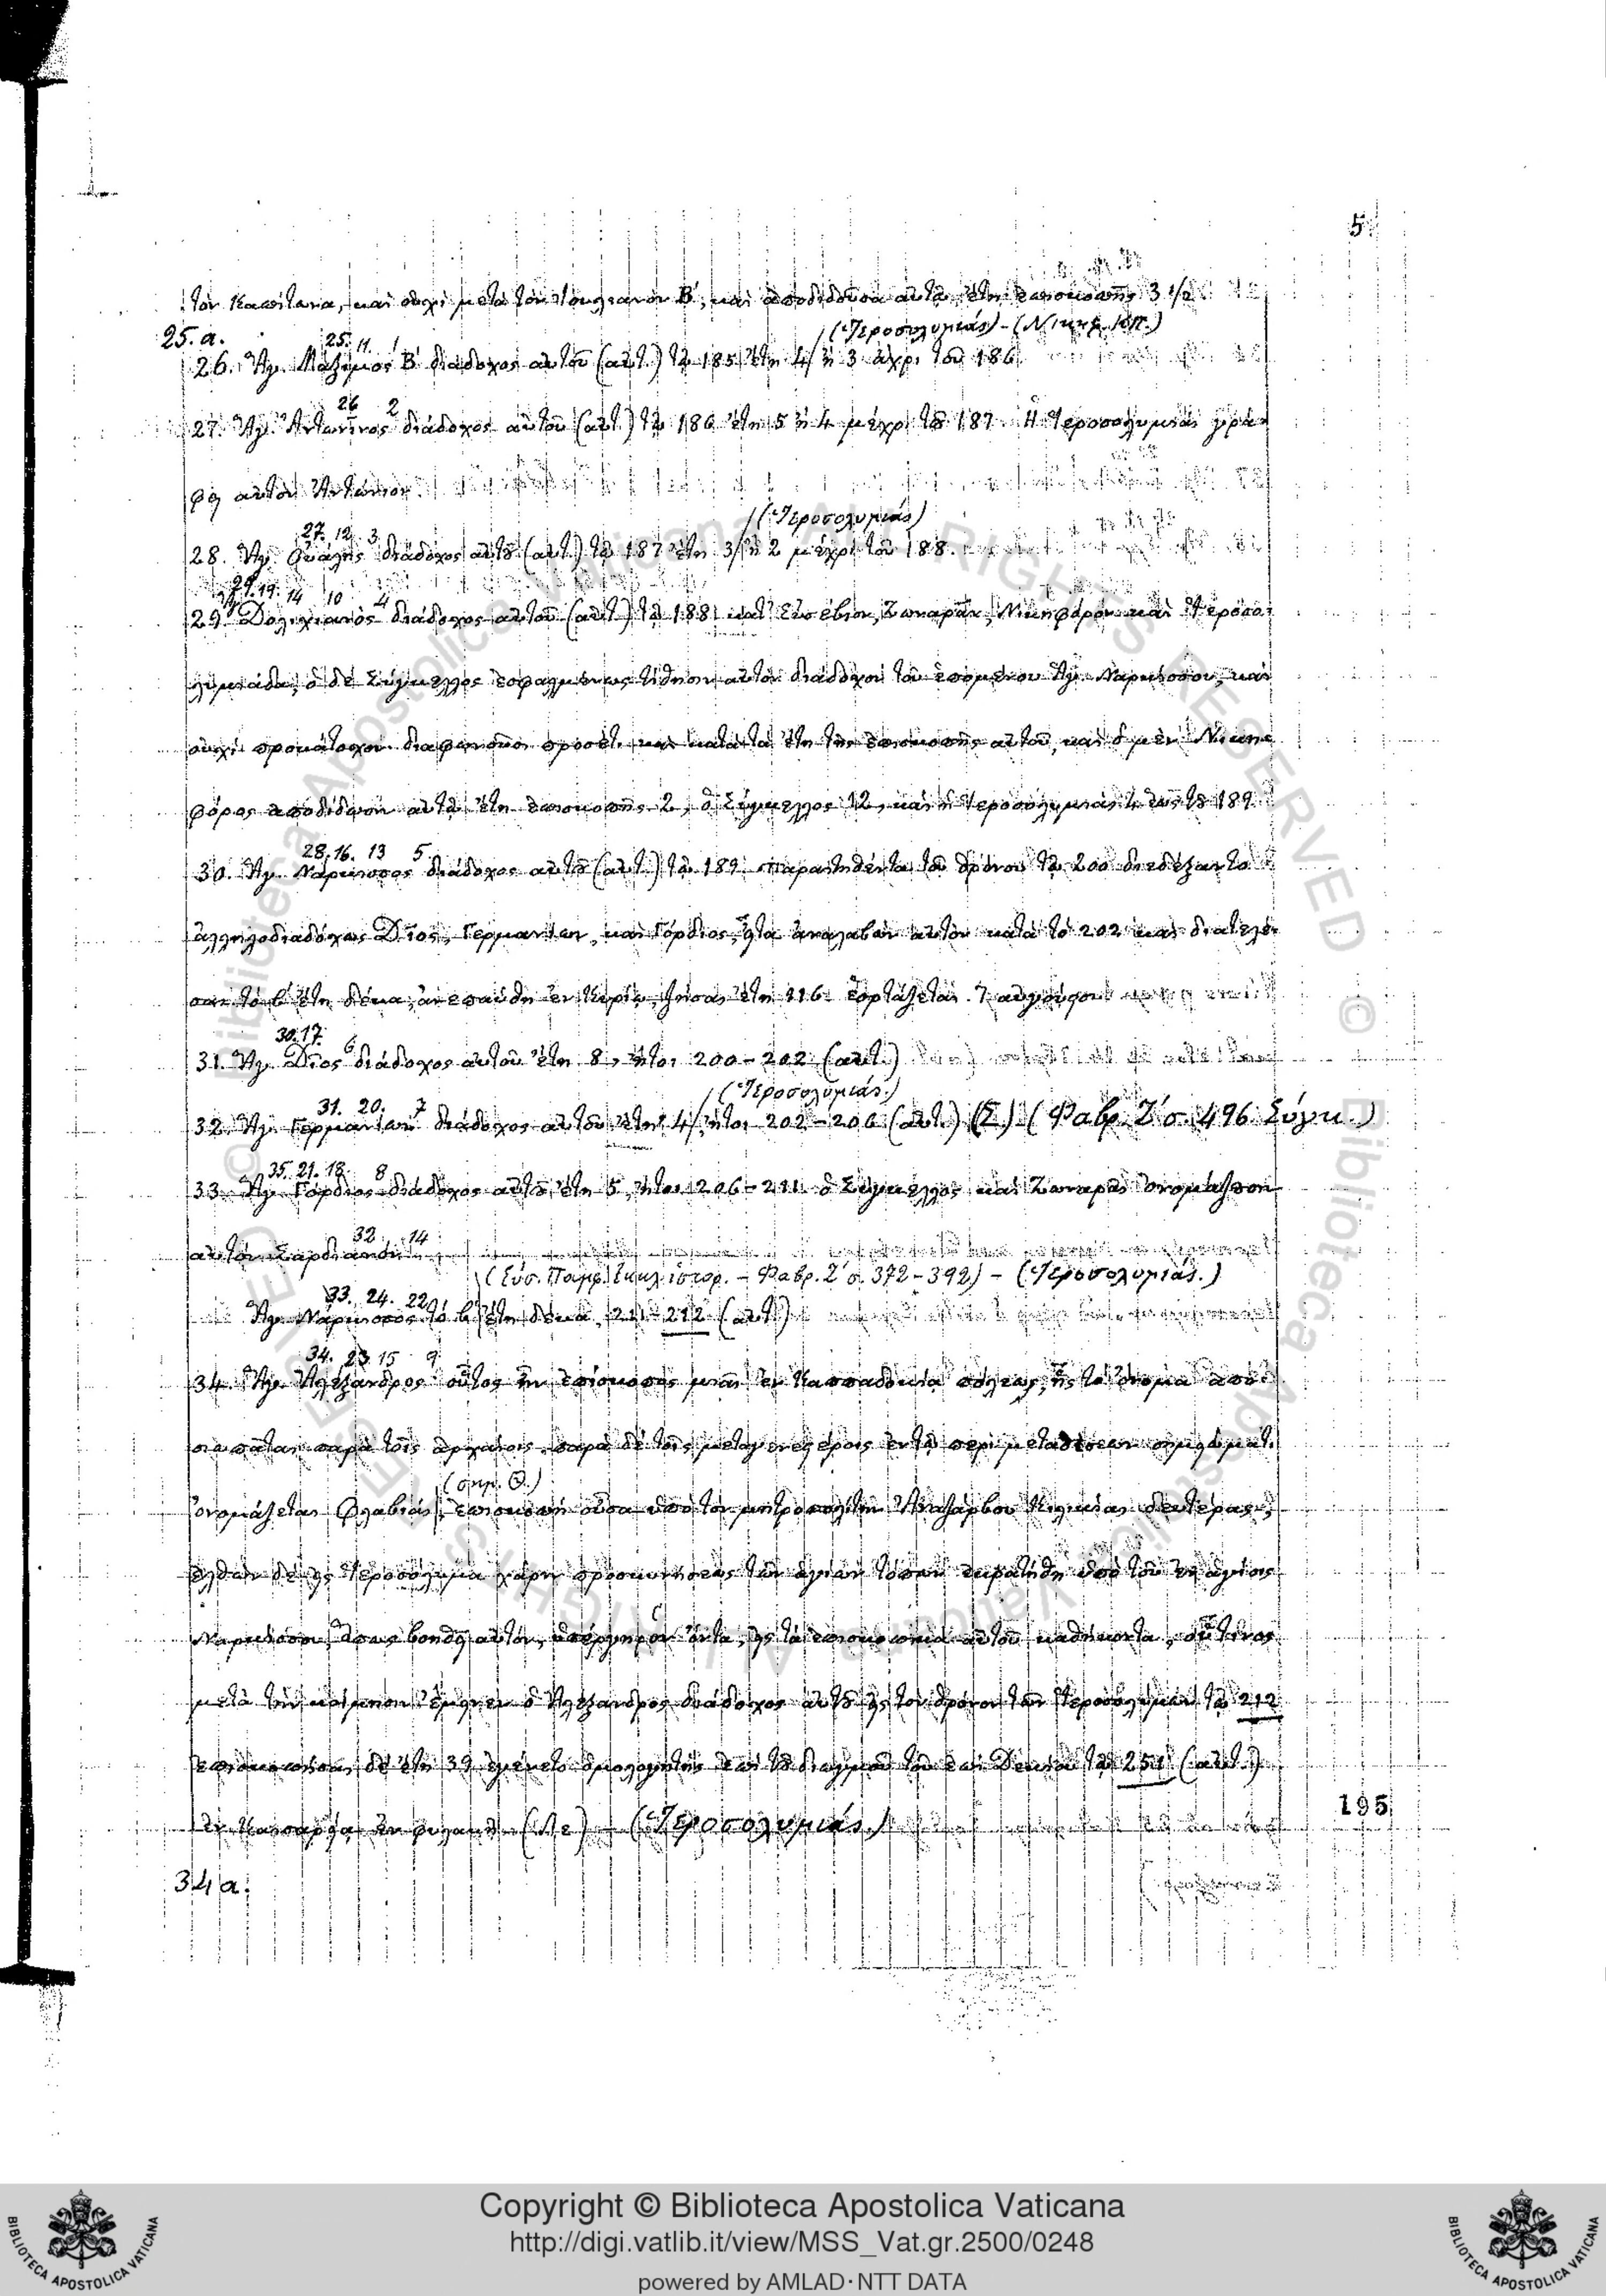 5
τὸν Καπίτωνα, καὶ οὐχὶ μετὰ τὸν Ἰουλιανὸν Β, καὶ ἀποδίδουσι αὐτῷ ἔτη ἐπισκοπῆς 3 1/2
(Ἱεροσολυμιάς) - (Νικηφ. Κπ.)
25.α.
25. 11. 1
26. Ἅγ. Μάξιμος Β διάδοχος αὐτοῦ (αὐτ.) τῷ 185 ἔτη 4 ἢ 3 ἄχρι τοῦ 186
26 2
27. Ἅγ. Ἀντωνῖνος διάδοχος αὐτοῦ (αὐτ.) τῷ 186 ἔτη 5 ἢ 4 μέχρι τοῦ 187. Ἡ Ἱεροσολυμιὰς γρά-
φει αὐτὸν Ἀντώνιον.
(Ἱεροσολυμιάς)
27. 12. 3
28. Ἅγ. Οὐάλης διάδοχος αὐτοῦ (αὐτ.) τῷ 187 ἔτη 3 ἢ 2 μέχρι τοῦ 188.
29. 19. 14 10 4
29. Δολιχιανὸς διάδοχος αὐτοῦ (αὐτ.) τῷ 188 κατ' Εὐσέβιον, Ζωναρᾶν, Νικηφόρον καὶ Ἱεροσο-
λυμιάδα, ὁ δὲ Σύγκελλος ἐσφαλμένως τίθησιν αὐτὸν διάδοχον τοῦ ἑπομένου Ἁγ. Ναρκίσσου, καὶ
οὐχὶ προκάτοχον. διαφωνοῦσι προσέτι καὶ κατὰ τὰ ἔτη τῆς ἐπισκοπῆς αὐτοῦ, καὶ ὁ μὲν Νικη-
φόρος ἀποδίδωσι αὐτῷ ἔτη ἐπισκοπῆς 2, ὁ Σύγκελλος 12, καὶ ἡ Ἱεροσολυμιὰς 4 ἕως τοῦ 189
28. 16. 13 5
30. Ἅγ. Νάρκισσος διάδοχος αὐτοῦ (αὐτ.) τῷ 189. παραιτηθέντα τοῦ θρόνου τῷ 200 διεδέξαντο
ἀλληλοδιαδόχως Δῖος, Γερμανίων, καὶ Γόρδιος, εἶτα ἀναλαβὼν αὐτὸν κατὰ τὸ 202 καὶ διατελέ-
σας τὸ β' ἔτη δέκα, ἀνεπαύθη ἐν Κυρίῳ, ζήσας ἔτη 116. ἑορτάζεται 7 αὐγούστου
30. 17.
6
31. Ἅγ. Δῖος διάδοχος αὐτοῦ ἔτη 8, ἤτοι 200-202 (αὐτ.)
(Ἱεροσολυμιάς.)
31. 20. 7
32. Ἅγ. Γερμανίων διάδοχος αὐτοῦ ἔτη 4, ἤτοι 202-206 (αὐτ.) (Σ) (Φαβρ. Ζ' σ. 496 Σύγκ.)
35. 21. 18. 8
33. Ἅγ. Γόρδιος διάδοχος αὐτοῦ ἔτη 5, ἤτοι 206-211. ὁ Σύγκελλος καὶ Ζωναρᾶς ὀνομάζουσι
32. 14
αὐτὸν Σαρδιανόν.
(Εὐσ. Παμφ. Ἐκκλ. ἱστορ. - Φαβρ. Ζ' σ. 372-392) - (Ἱεροσολυμιάς.)
33. 24. 22
Ἅγ. Νάρκισσος τὸ β' ἔτη δέκα, 211-212 (αὐτ.)
34. 23. 15 9
34. Ἅγ. Ἀλέξανδρος οὗτος ἦν ἐπίσκοπος μιᾶς ἐν Καππαδοκίᾳ πόλεως, ἧς τὸ ὄνομα ἀπο-
σιωπᾶται παρὰ τοῖς ἀρχαίοις. παρὰ δὲ τοῖς μεταγενεστέροις ἐν τῷ περὶ μεταθέσεων σημειώματι
(σημ. Θ.)
ὀνομάζεται Φλαβιάς, ἐπισκοπὴ οὖσα ὑπὸ τὸν μητροπολίτην Ἀναζάρβου Κιλικίας δευτέρας,
ἐλθὼν δὲ εἰς Ἱεροσόλυμα χάριν προσκυνήσεως τῶν ἁγίων τόπων ἐκρατήθη ὑπὸ τοῦ ἐν ἁγίοις
Ναρκίσσου, ὅπως βοηθῇ αὐτόν, ὑπέργηρον ὄντα, εἰς τὰ ἐπισκοπικὰ αὐτοῦ καθήκοντα, οὗτινος
μετὰ τὴν κοίμησιν ἔμεινεν ὁ Ἀλέξανδρος διάδοχος αὐτοῦ εἰς τὸν θρόνον τῶν Ἱεροσολύμων τῷ 212
ἐπισκοπήσας δὲ ἔτη 39 ἐγένετο ὁμολογητὴς ἐπὶ τοῦ διωγμοῦ τοῦ ἐπὶ Δεκίου τῷ 251 (αὐτ.)
ἐν Καισαρείᾳ ἐν φυλακῇ (Λε) - (Ἱεροσολυμιάς.)
195
34 α.
Copyright © Biblioteca Apostolica Vaticana
http://digi.vatlib.it/view/MSS_Vat.gr.2500/0248
powered by AMLAD·NTT DATA